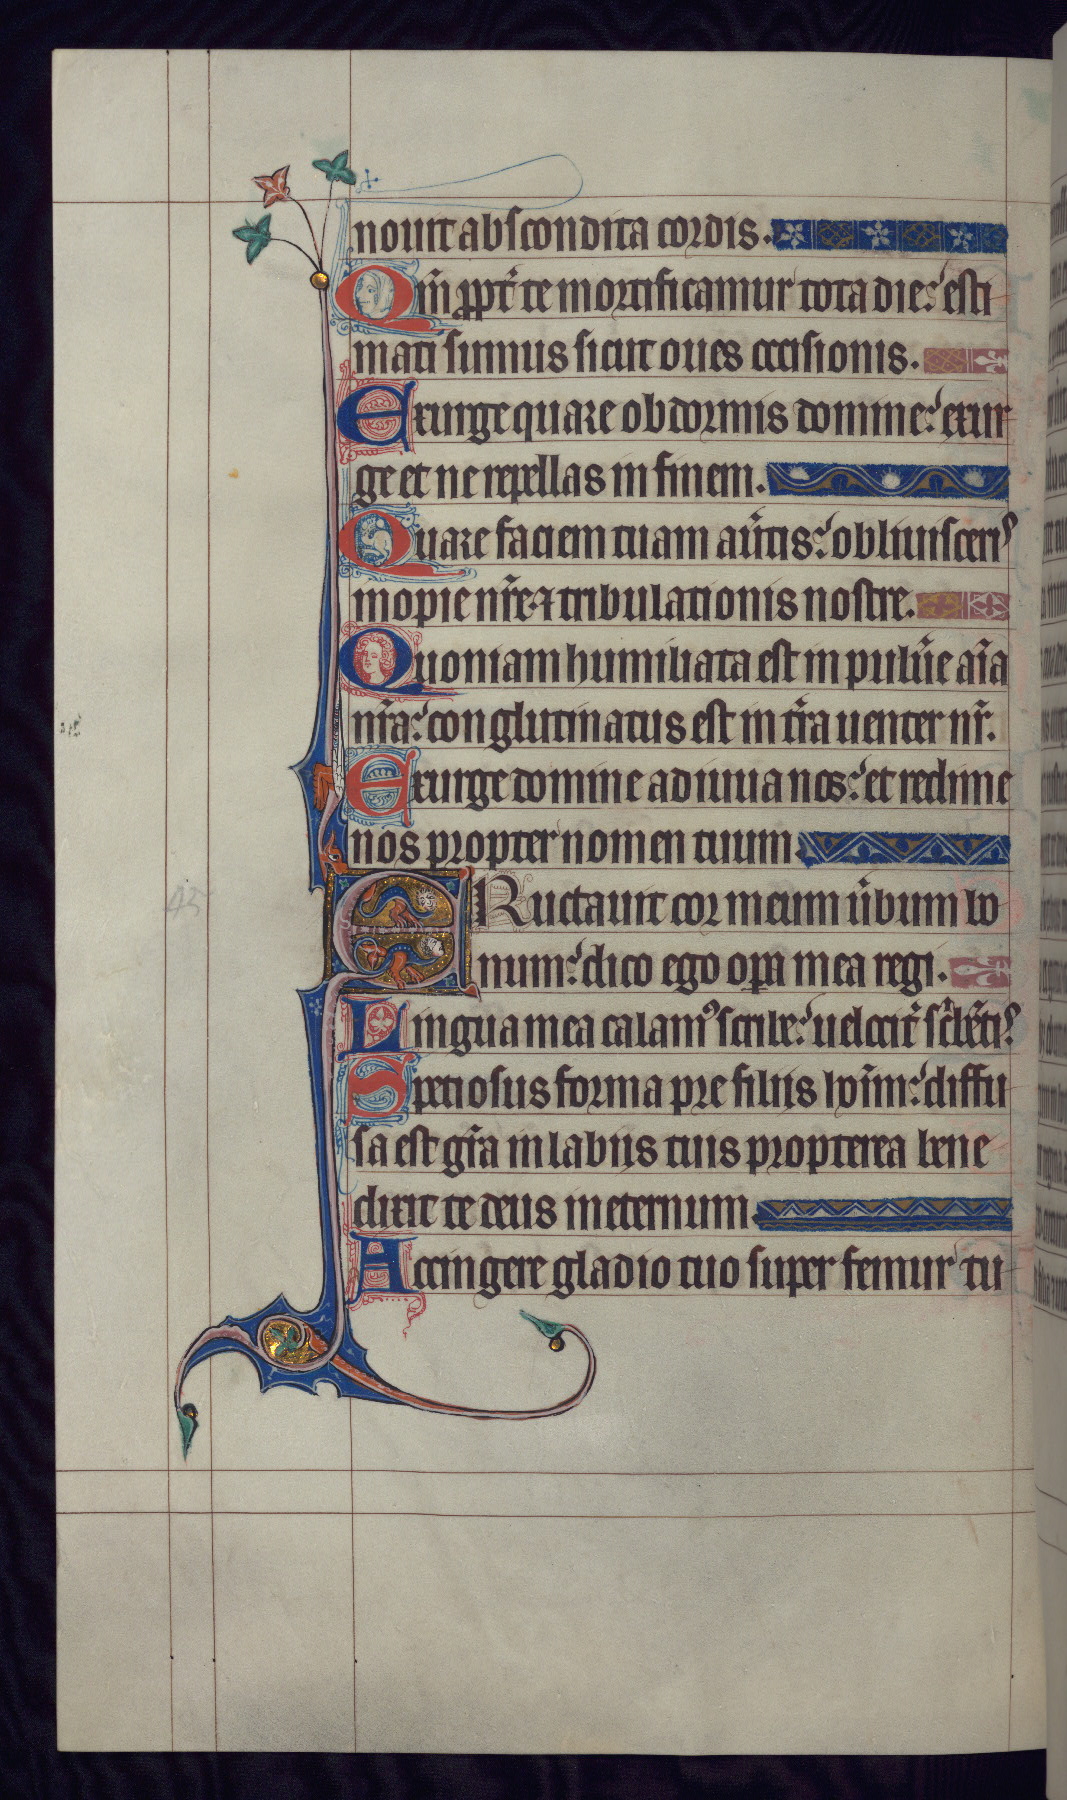 nouit abscondita cordis.
Qm̄ ꝓpt̄ te mortificamur tota die: esti
mati sumus sicut oues occisionis.
Exurge quare obdormis domine: exur
ge et ne repellas in finem.
Quare faciem tuam au̅tis: obliuisceris
inopie nr̄e ⁊ tribulationis nostre.
Quoniam humiliata est in pulu̅e ai̅a
nr̄a: conglutinatus est in tr̄a uenter nr̄.
Exurge domine adiuua nos: et redime
nos propter nomen tuum.
ERuctauit cor meum u̅bum bo
num: dico ego oꝑa mea regi.
Lingua mea calamꝰ scribe: uelocit̄
Spetiosus forma pre filiis hoīm: diffu
sa est gr̄a in labiis tuis propterea bene
dixit te deus in eternum.
Accingere gladio tuo super femur tu
45